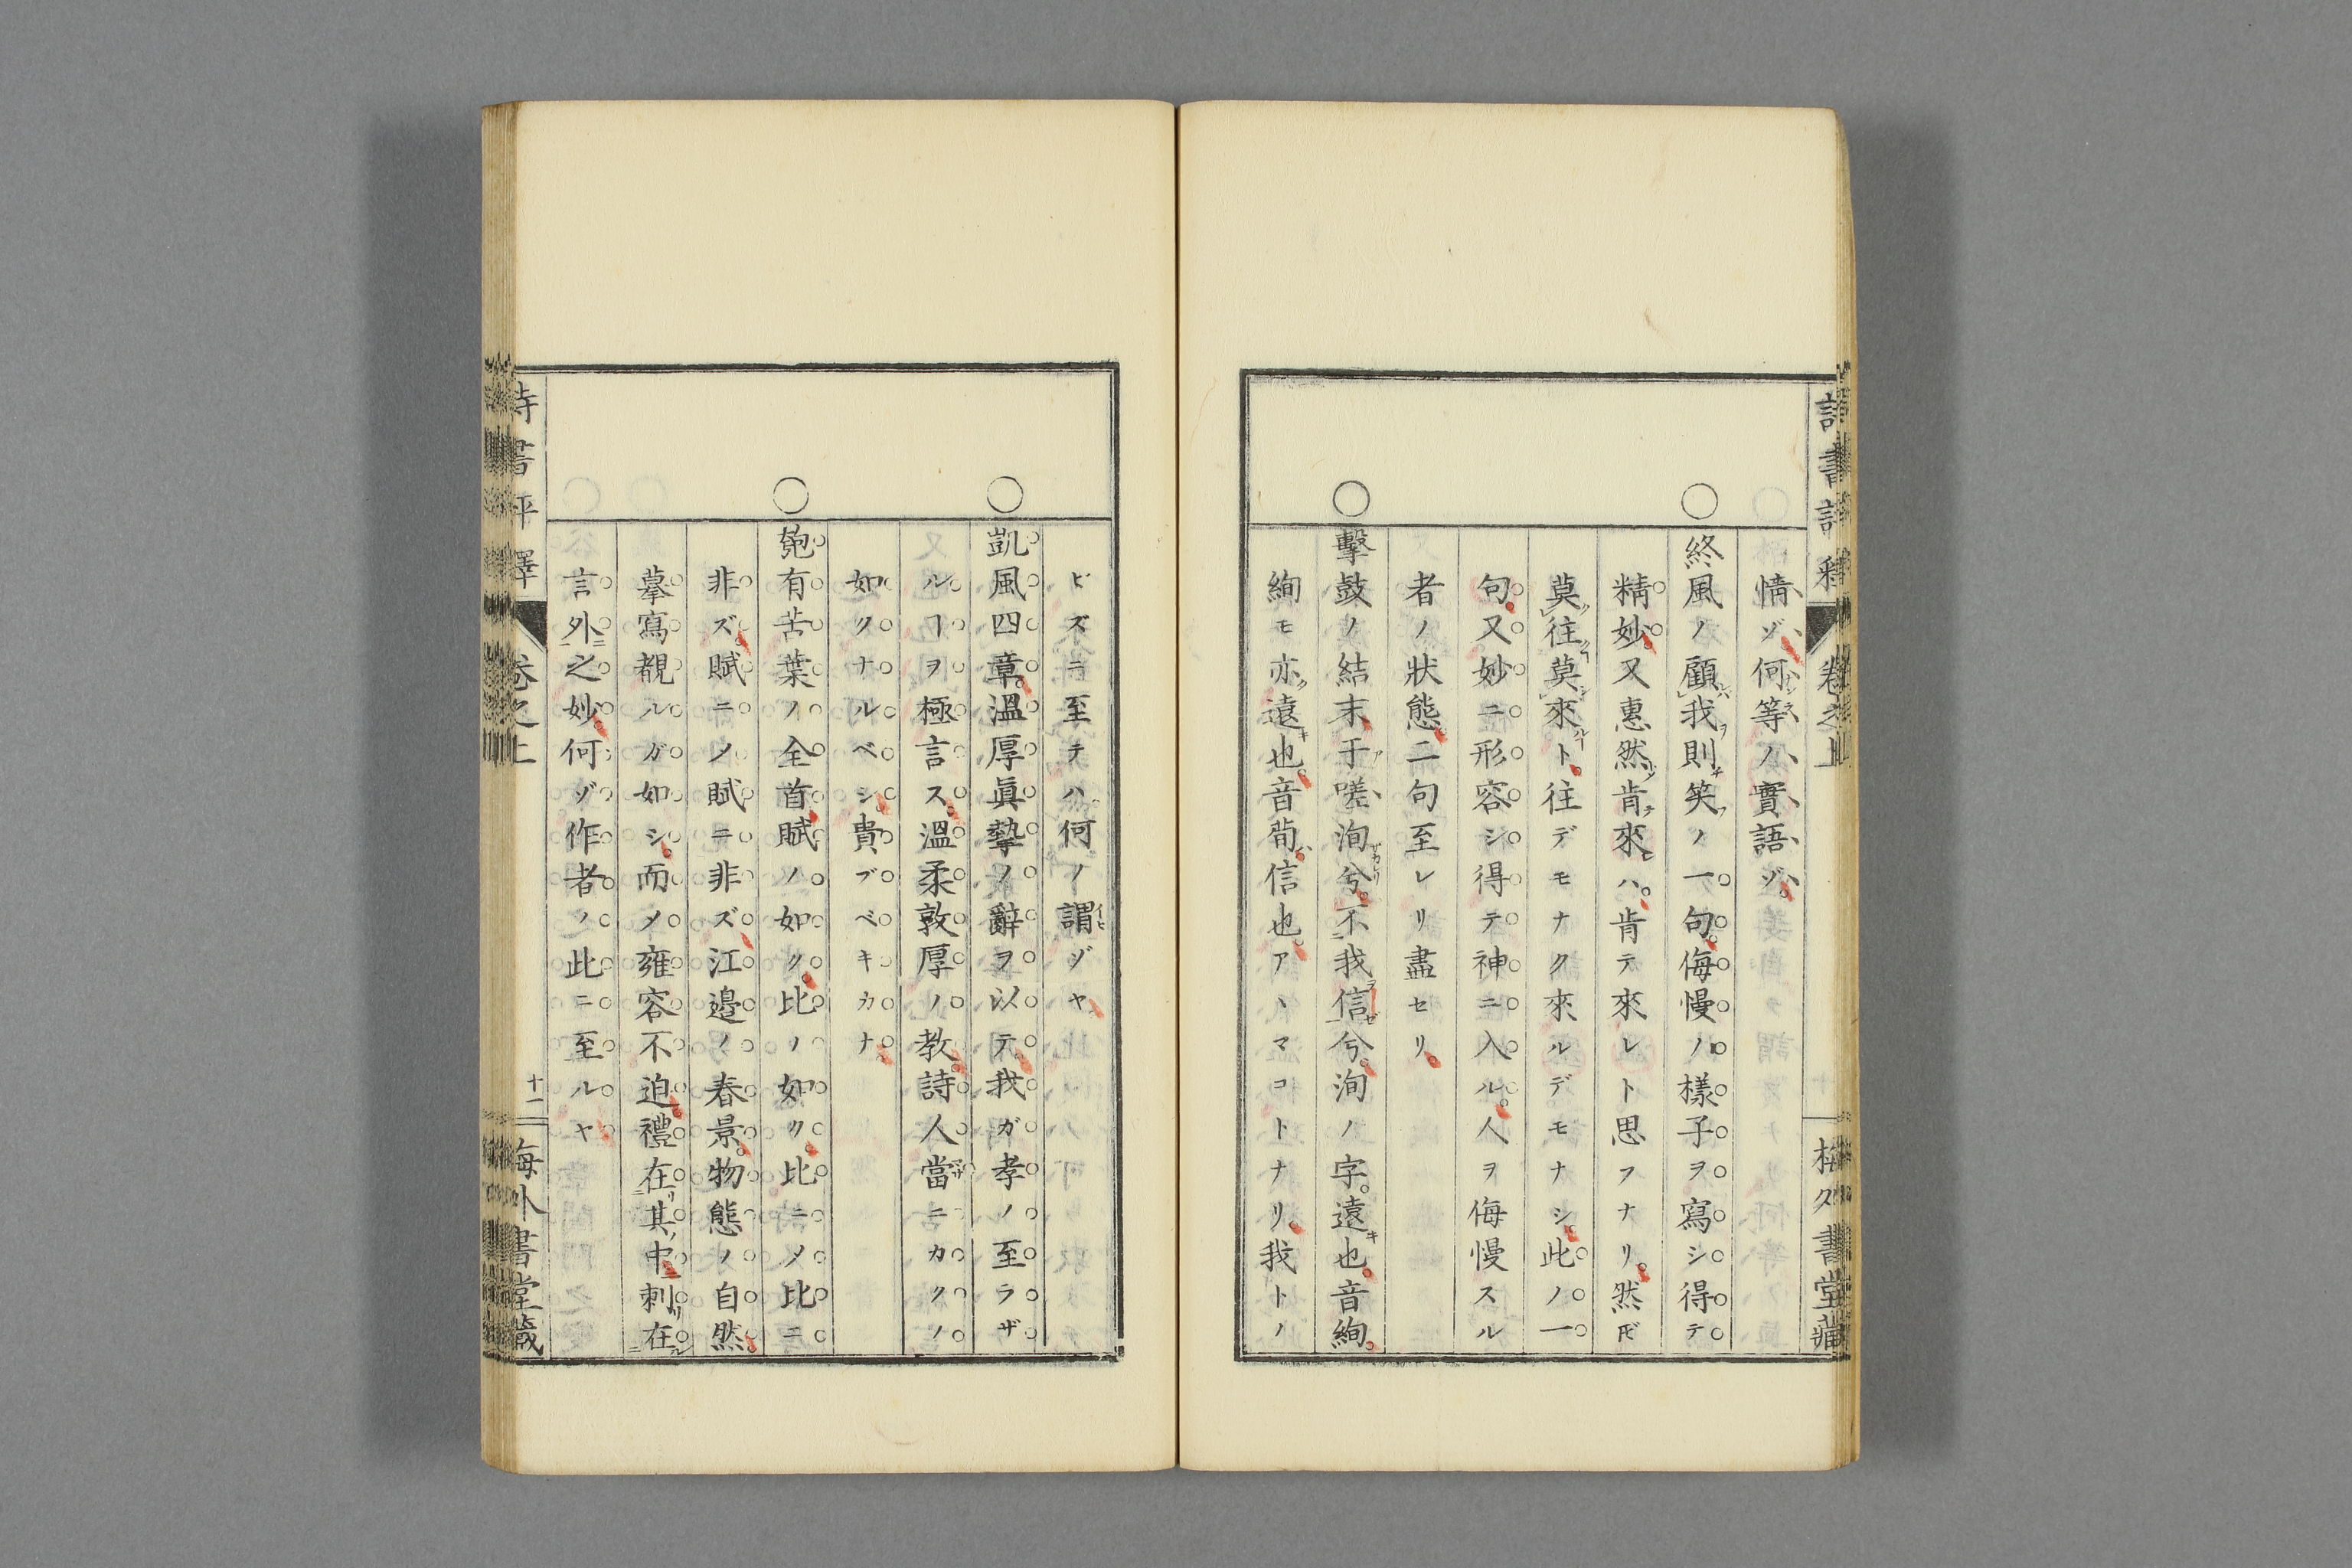 情ゾ何等ノ實語ゾ
終風ノ顧我則笑ノ一句侮慢ノ樣子ヲ寫シ得テ
精妙又惠然肯來ハ肯テ來レト思フナリ然𪜈
莫往莫來ト往デモナク來ルデモナシ此ノ一
句又妙ニ形容シ得テ神ニ入ル人ヲ侮慢スル
者ノ狀態二句至レリ盡セリ
擊鼓ノ結末于嗟洵兮不我信兮洵ノ字遠也音絢
絢モ亦遠也音荀信也アヽマコトナリ我トノ
ビズニ至テハ何ノ謂ジヤ
凱風四章溫厚眞摯ノ辭ヲ以テ我ガ孝ノ至ラザ
ルヿヲ極言ス溫柔敦厚ノ教詩人當ニカクノ
如クナルベシ貴ブベキカナ
匏有苦葉ノ全首賦ノ如ク比ノ如ク比ニメ比ニ
非ズ賦ニノ賦ニ非ズ江邉ノ春景物態ノ自然
摹寫覩ルガ如シ而メ雍容不迫禮在其中刺在
言外之妙何ゾ作者ノ此ニ至ルヤ
卷之上
十一
海外書堂藏